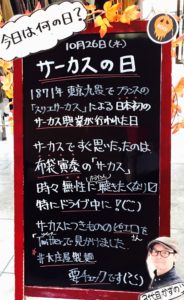 今日は何の日?
10月26日(木)
サーカスの日
1871年 東京九段で フランスの
「スリエサーカス」による 日本初の
サーカス興業が行われた日
サーカスですぐ思いったのは
布袋寅泰の「サーカス」
時々 無性に 聴きたくなり
特にドライブ中に!
サーカスにつきものの ピエロ を
で見かけました
吉木食屋製麺
要チェックです
2代目かずの